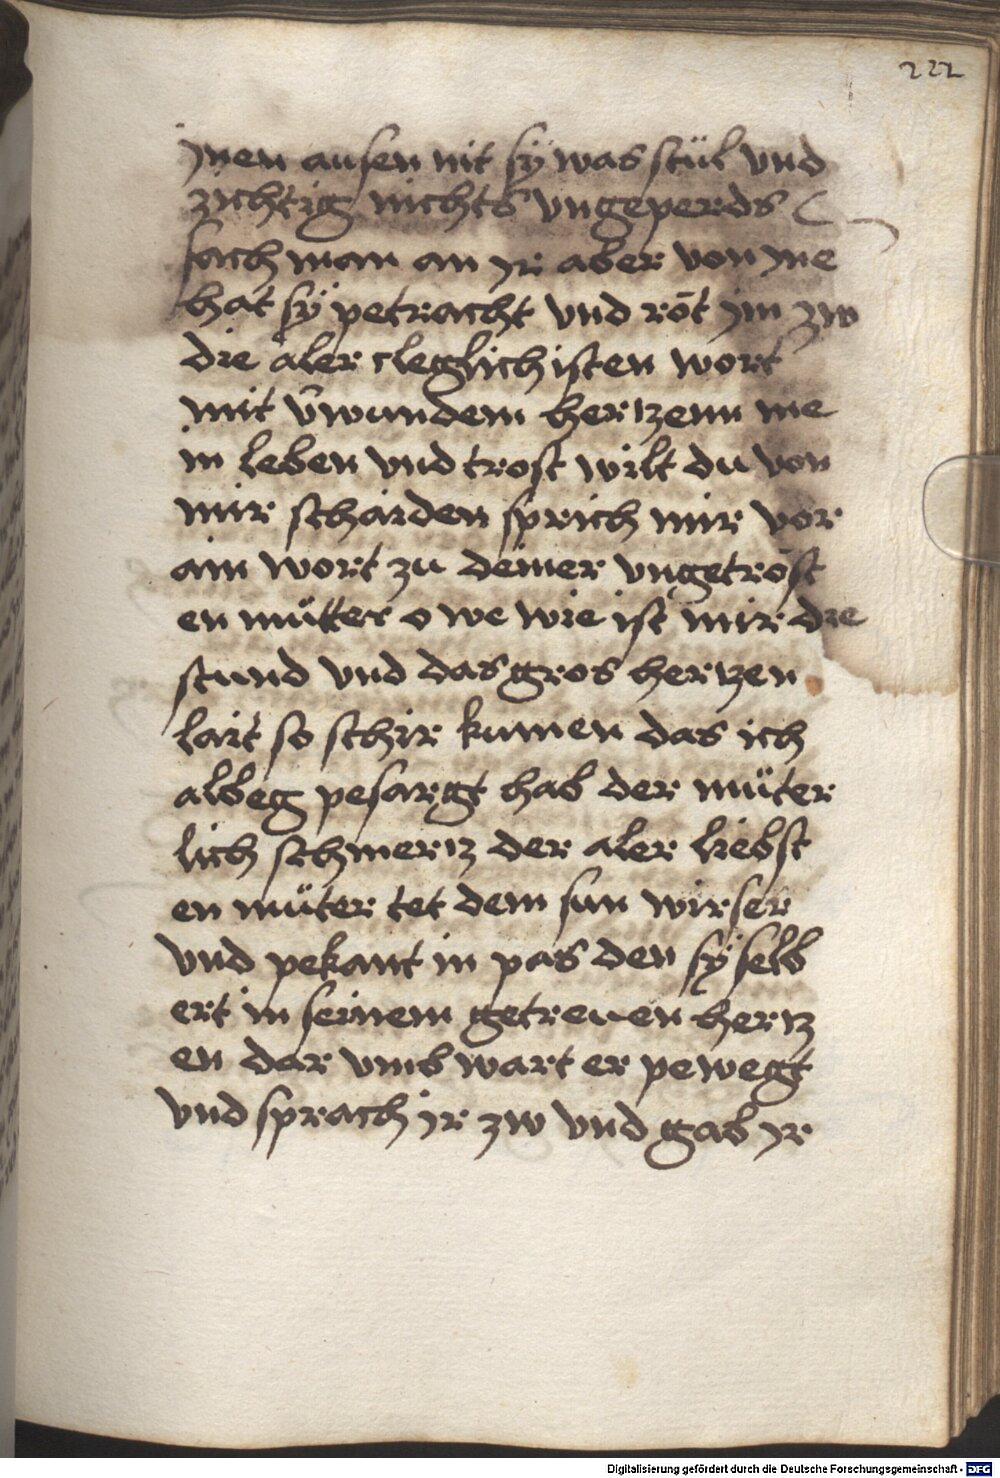 222
jnen ausen nit sÿ was stül vnd
zichtig nichts vngeperds
sach man an jr aber von jne
hat sÿ petracht vnd rot jm zw
die aler cleglichisten wort
mit v̂wundem hertzenn me
in leben vnd trost wilt du von
mir schaiden sprich mir vor
ain wort zu deiner vngetröst
en mütter o we wie ist mir die
stund vnd das gros hertzen
lait so schir kumen das ich
albeg pesargt hab der müter
lich schmertz der aler liebst
en müter tet dem sun wirser
vnd pekant in pas den sÿ selb
ert in seinem getreuen hertz
en dar vmb wart er pewegt
vnd sprach jr zw vnd gab jr
Digitalisierung gefördert durch die Deutsche Forschungsgemeinschaft - DFG